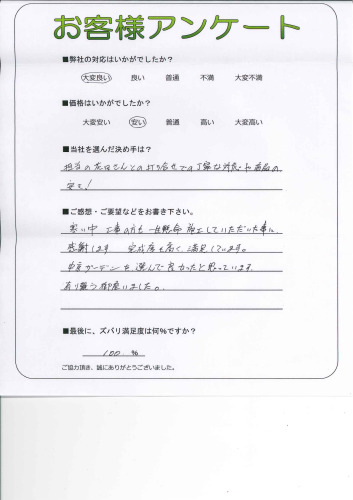 お客様アンケート
■弊社の対応はいかがでしたか？
大変良い 良い 普通 不満 大変不満
■価格はいかがでしたか？
大変安い 安い 普通 高い 大変高い
■当社を選んだ決め手は？
担当の さんとの打ち合せでの丁寧な対応や商品の
安さ！
■ご感想・ご要望などをお書き下さい。
寒い中 工事の方も一生懸命 施工していただいた事に
感謝します 完成度も高く、満足しています。
ガーデンを選んで良かったと思っています
有り難う御座いました。
■最後に、ズバリ満足度は何％ですか？
100 ％
ご協力頂き、誠にありがとうございました。